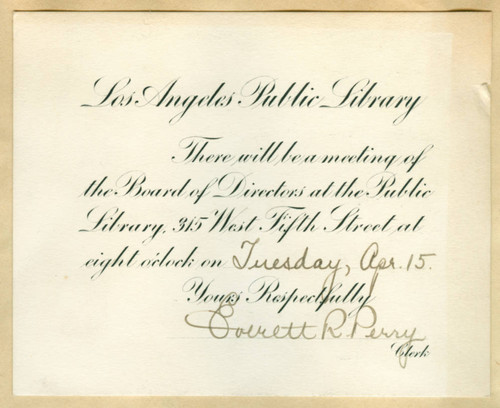 Los Angeles Public Library
There will be a meeting of
the Board of Directors at the Public
Library, 315 West Fifth Street, at
eight o'clock on Tuesday, Apr. 15.
Yours Respectfully
Everett R. Perry
Clerk